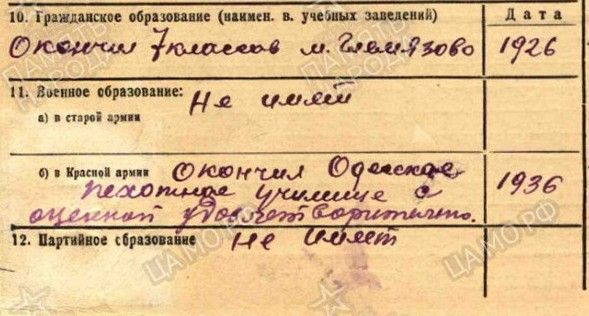 10. Гражданское образование (наимен. в. учебных заведений) Дата
Окончил 7 классов м. 1926
11. Военное образование: Не имеет
а) в старой армии
б) в Красной армии Окончил Одесское
пехотное училище с 1936
оценкой удовлетворительно.
12. Партийное образование Не имеет
ПАМЯТЬ НАРОДА
ЦАМО.РФ
ЦАМО.РФ